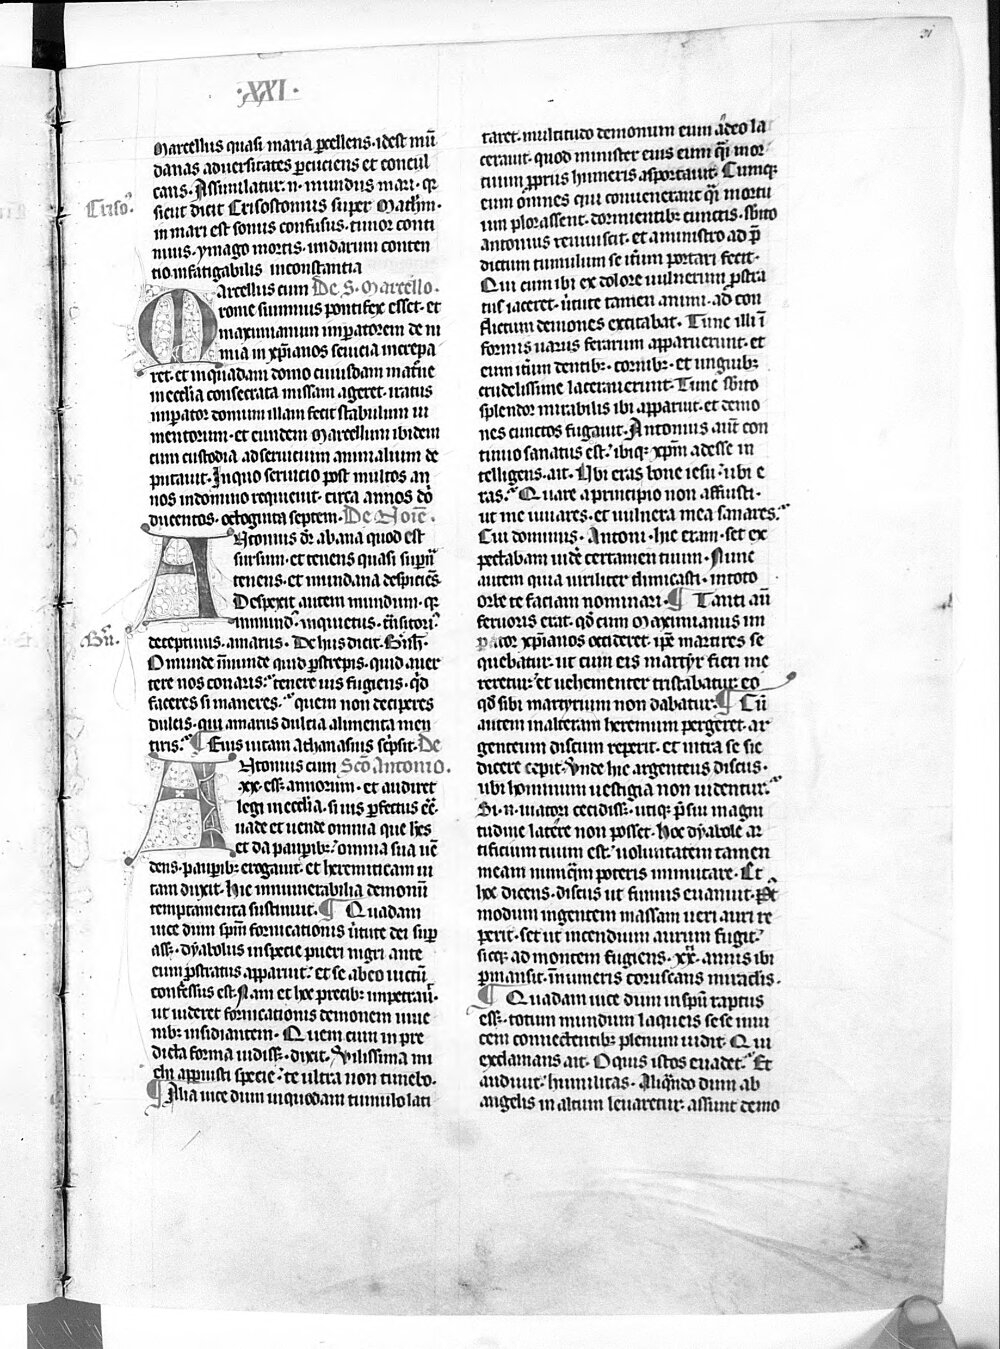 31
·XXI·
Marcellus quasi maria p̄cellens· idest mū
danas aduersitates ꝑcuciens et concul
cans· Assimilatur· n· mundus mari· qr
Criso⁹·
sicut dicit Crisostomus super Math̄m·
in mari est sonus confusus· timor conti
nuus· ymago mortis· undarum conten
tio infatigabilis inconstantia
Marcellus cum De· S· Marcello·
rome summus pontifex esset· et
maximianum imꝑatorem de ni
mia in xp̄ianos seuicia increpa
ret· et in quadam domo cuiusdam mat̄ne
in ecclia consecrata missam ageret· iratus
imꝑator domum illam fecit stabulum iu
mentorum· et eundem Marcellum ibidem
cum custodia ad seruicium animalium de
putauit· In quo seruicio post multos an
nos in domino requieuit· circa annos dō
ducentos· octoginta septem· De Noīe·
Antonius dr̄ ab ana quod est
sursum· et tenens quasi suꝑn̄
tenens· et mundana despiciēs·
Despexit autem mundum· qr
inmund⁹· inquietus· t̄nsitori⁹
B̄n·
deceptiuus· amarus· De hiis dicit· B̄nh·
O munde in̄munde quid ꝑstrepis· quid auer
tere nos conaris· tenere uis fugiens· qd̄
faceres si maneres· quem non deciperes
dulcis· qui amarus dulcia alimenta men
tiris· ¶ Eius uitam athanasius sc̄psit· De
Antonius cum Scō Antonio·
xx· ess̄· annorum· et audiret
legi in ecclia· si uis ꝑfectus eē·
uade et uende omnia que hēs
et da pauꝑib⁊· omnia sua uē
dens· pauꝑib⁊ erogauit· et heremiticam ui
tam duxit· Hic innumerabilia demonū
temptamenta sustinuit· ¶ Quadam
uice dum sp̄m fornicationis u̇tute dei suꝑ
ass̄· dyabolus in specie pueri nigri ante
eum ꝓstratus apparuit· et se ab eo uictū
confessus est· Nam et hoc precib⁊ impetrau̇·
ut uideret fornicationis demonem iuue
nib⁊ insidiantem· Quem cum in pre
dicta forma uidiss̄· dixit· Vilissima mi
chi apparuisti specie· te ultra non timebo·
¶ Alia uice dum in quodam tumulo lati
taret· multitudo demonum eum adeo la
cerauit· quod minister eius eum q̄i mor
tuum ꝓprijs humeris asportauit· Cumq⁊
eum omnes qui conuenerant q̄i mortu
um plorassent· dormientib⁊ cunctis· s̄bito
antonius reuiuiscit· et a ministro ad p̄
dictum tumulum se it̄um portari fecit·
Qui cum ibi ex dolore uulnerum ꝓstra
tus iaceret· u̇tute tamen animi· ad con
flictum demones excitabat· Tunc illi ī
formis uariis ferarum apparuerunt· et
eum it̄um dentib⁊· cornib⁊· et unguib⁊
crudelissime lacerauerunt· Tunc s̄bito
splendor mirabilis ibi apparuit· et demo
nes cunctos fugauit· Antonius aūt con
tinuo sanatus est· ibiq⁊ xp̄m adesse in
telligens· ait· Vbi eras bone iesu· ubi e
ras· Quare a principio non affuisti·
ut me iuuares· et uulnera mea sanares·
Cui dominus· Antoni· hic eram· set ex
pectabam uidē certamen tuum· Nunc
autem quia uiriliter dimicasti· in toto
orbe te faciam nominari· ¶ Tanti aūt
feruoris erat· qd̄ cum Maximianus im
ꝑator xp̄ianos occideret· ip̄e martires se
quebatur· ut cum eis martyr fieri me
reretur· et uehementer tristabatur· eo
qd̄ sibi martyrium non dabatur· ¶ Cū
autem in alteram heremum pergeret· ar
genteum discum reperit· et intra se sic
dicere cepit· Vnde hic argenteus discus·
ubi hominum uestigia non uidentur·
Si· n· uiatori cecidiss̄· utiq⁊ p̄ sui magni
tudine latere non posset· Hoc dyabole ar
tificium tuum est· uoluntatem tamen
meam numq̄m poteris inmutare· Et
hoc dicens· discus ut fumus euanuit· Post
modum ingentem massam ueri auri re
perit· set ut incendium aurum fugit·
sicq⁊ ad montem fugiens· xx· annis ibi
ꝑmansit· in̄numeris coruscans miraclis·
¶ Quadam uice dum in sp̄u raptus
ess̄· totum mundum laqueis sese inui
cem connectentib⁊ plenum uidit· Qui
exclamans ait· O quis istos euadet· Et
audiuit· humilitas· Aliqn̄do dum ab
angelis in altum leuaretur· assunt demo